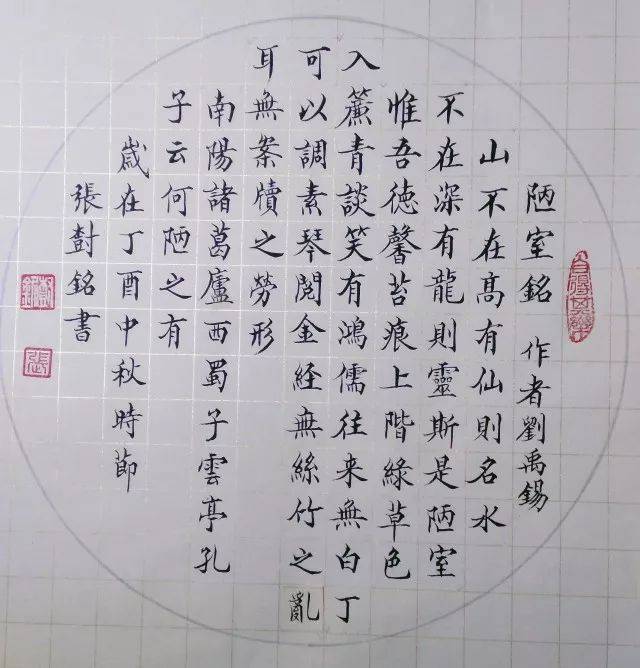 陋室銘 作者劉禹錫
山不在高有仙則名水
不在深有龍則靈斯是陋室
惟吾德馨苔痕上階綠草色
入簾青談笑有鴻儒往来無白丁
可以調素琴閲金経無絲竹之亂
耳無案牘之勞形
南陽諸葛廬西蜀子雲亭孔
子云何陋之有
歲在丁酉中秋時節
張尌銘書
張